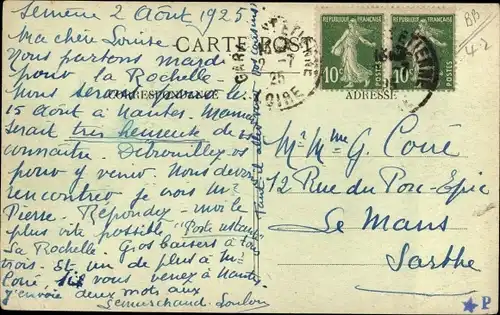 Semène 2 Août 1925
Ma chère Louise
Nous partons mardi
pour la Rochelle.
Nous serons pour le
15 Août à Nantes. Maman
serait très heureuse de vs
connaître. Débrouillez-vs
pour y venir. Nous devons
rencontrer je crois Mr
Pierre. Répondez-moi le
plus vite possible, "Poste restante"
La Rochelle. Gros baisers à tous
trois. Et un de plus à Mr
Coué, si vous venez à Nantes
j'envoie deux mots aux
CARTE POSTALE
CORRESPONDANCE
ADRESSE
REPUBLIQUE FRANÇAISE
10c
REPUBLIQUE FRANÇAISE
10c
GARE
25
LOIRE
ETIENNE
BB
42
Mr Mme G. Coué
12 Rue du Porc-Epic
Le Mans
Sarthe
P